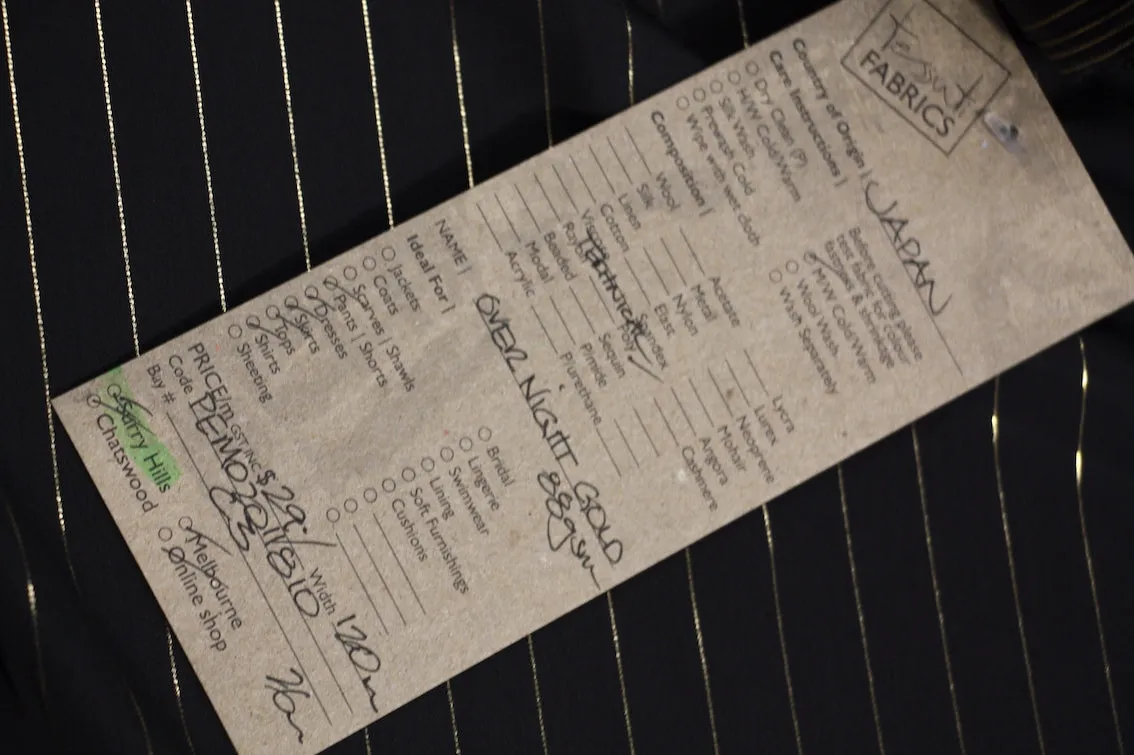 Tessuti
FABRICS
Country of Origin | JAPAN
Care Instructions |
Before cutting please
test fabric for colour
fastness & shrinkage
Dry Clean (P)
H/W Cold/Warm
Silk Wash
Prewash Cold
Wipe with wet cloth
M/W Cold/Warm
Wool Wash
Wash Separately
Composition |
Wool
Silk
Linen
Cotton
Beaded
Modal
Acrylic
Acetate
Metal
Nylon
Elast
Spandex
Sequin
Plurethane
Lycra
Lurex
Neoprene
Mohair
Angora
Cashmere
NAME | OVER NIGHT GOLD
88gsm
Ideal For |
Jackets
Coats
Scarves | Shawls
Pants | Shorts
Dresses
Skirts
Tops
Shirts
Sheeting
Bridal
Lingerie
Swimwear
Lining
Soft Furnishings
Cushions
PRICE/m GST INC $29./ Width 120m
Code DEMO2011810
Buy #
Surry Hills
Chatswood
Melbourne
Online shop